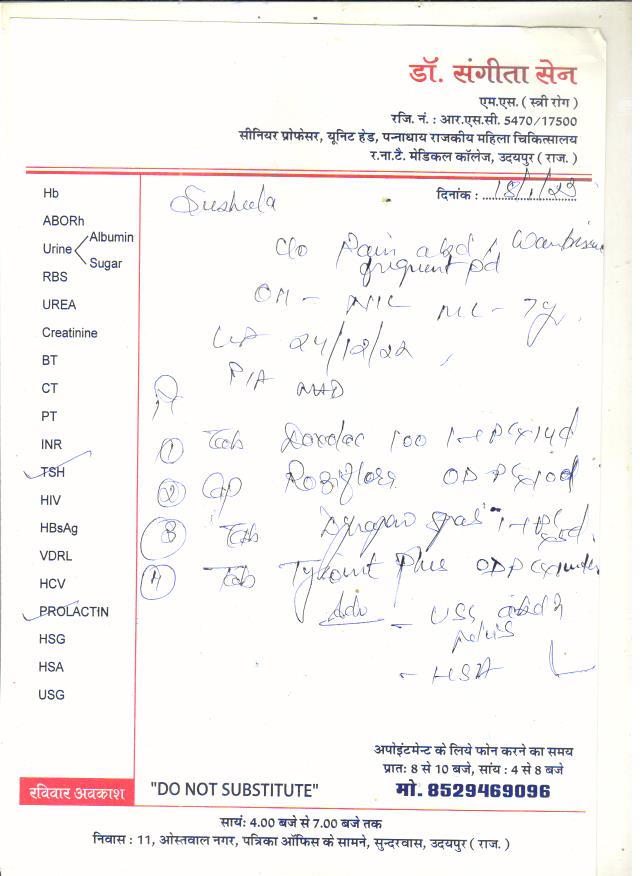 डॉ. संगीता सेन
एम.एस. ( स्त्री रोग )
रजि. नं. : आर.एस.सी. 5470/17500
सीनियर प्रोफेसर, यूनिट हेड, पन्नाधाय राजकीय महिला चिकित्सालय
र.ना.टै. मेडिकल कॉलेज, उदयपुर ( राज. )
दिनांक : 18/1/23
Susheela
Hb
ABORh
Urine Albumin
Sugar
RBS
UREA
Creatinine
BT
CT
PT
INR
TSH
HIV
HBsAg
VDRL
HCV
PROLACTIN
HSG
HSA
USG
C/o Pain abd
frequent
OH - NIL ML - 7y
24/12/22
P/A NAD
1 Tab 100
2 Cap OD
3 Tab
4 Tab Plus OD
Adv - USG abd
pelvis
- HSA
अपोइंटमेन्ट के लिये फोन करने का समय
प्रातः 8 से 10 बजे, सांय : 4 से 8 बजे
मो. 8529469096
रविवार अवकाश
"DO NOT SUBSTITUTE"
सायं: 4.00 बजे से 7.00 बजे तक
निवास : 11, ओस्तवाल नगर, पत्रिका ऑफिस के सामने, सुन्दरवास, उदयपुर ( राज. )